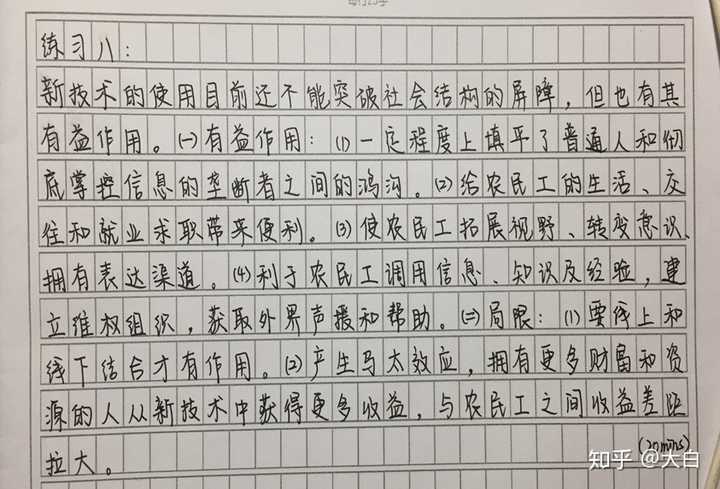 练习八：
新技术的使用目前还不能突破社会结构的屏障，但也有其
有益作用。㈠有益作用：⑴一定程度上填平了普通人和彻
底掌控信息的垄断者之间的鸿沟。⑵给农民工的生活、交
往和就业求取带来便利。⑶使农民工拓展视野、转变意识、
拥有表达渠道。⑷利于农民工调用信息、知识及经验，建
立维权组织，获取外界声援和帮助。㈡局限：⑴要线上和
线下结合才有作用。⑵产生马太效应，拥有更多财富和资
源的人从新技术中获得更多收益，与农民工之间收益差距
拉大。
(20mins)
知乎 @大白